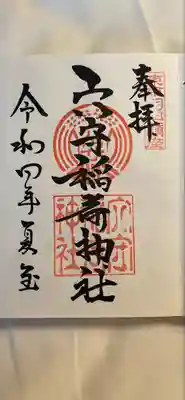 奉拝
穴守稲荷神社
令和四年夏至